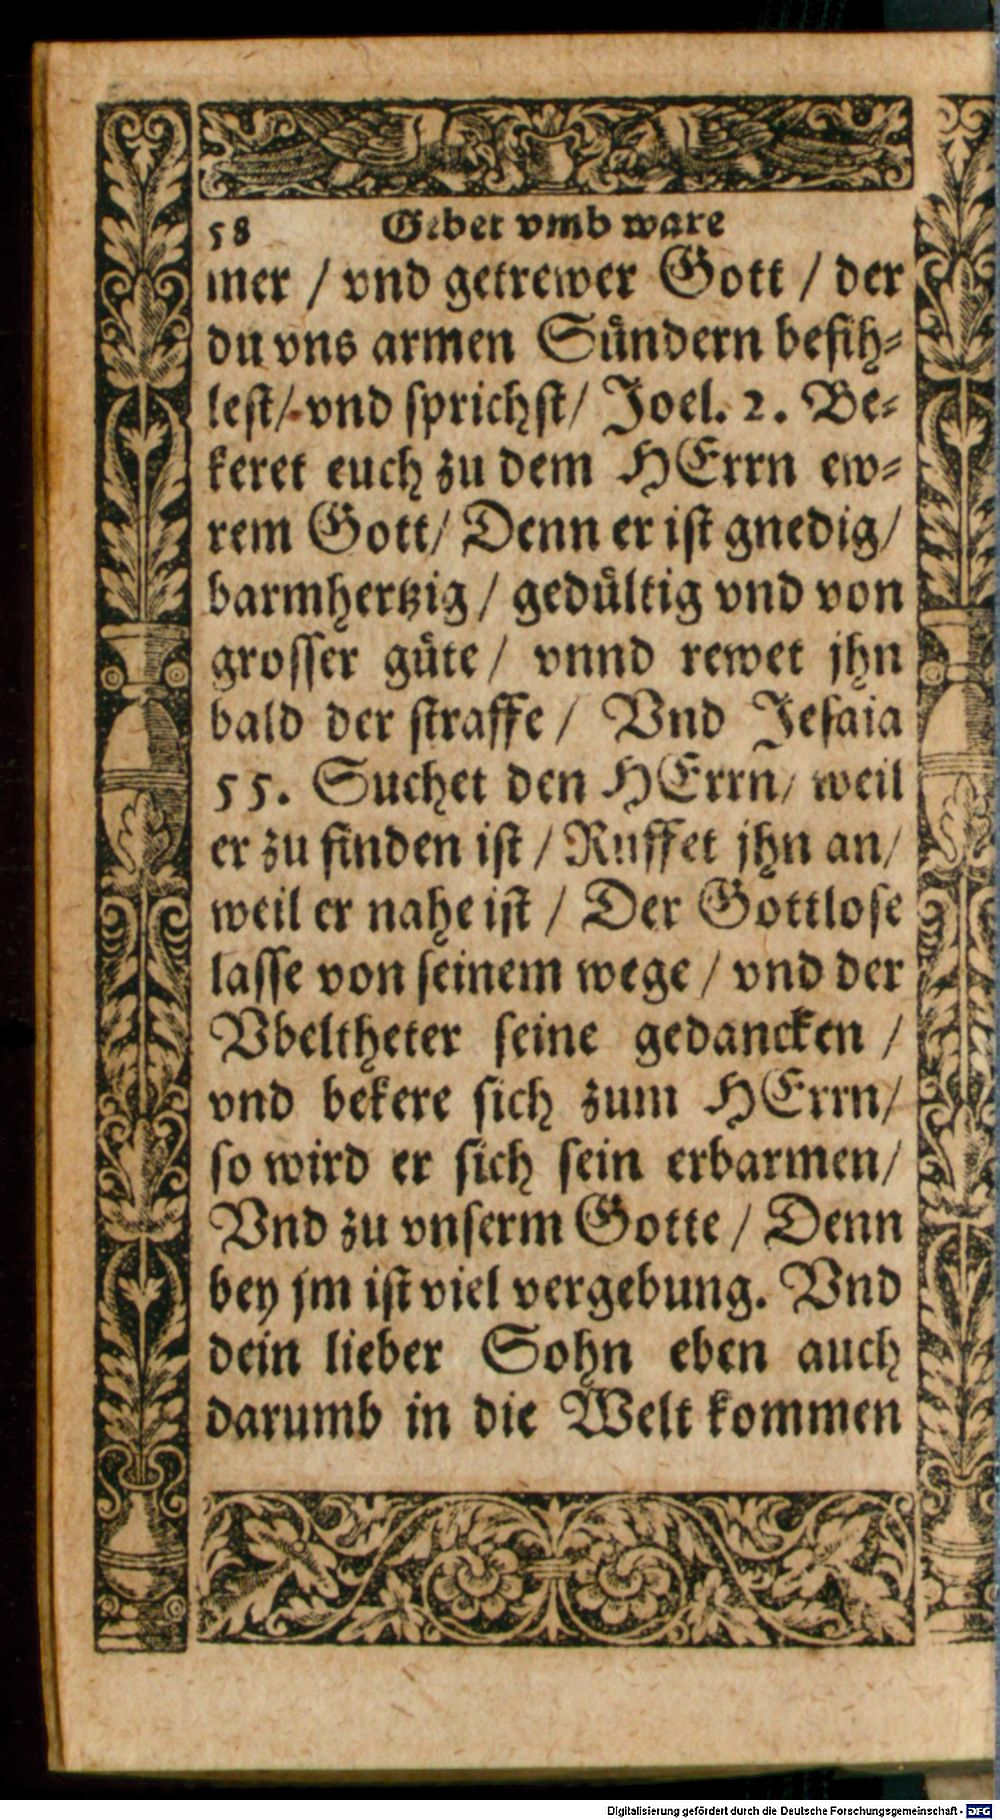 58 Gebet vmb ware
mer / vnd getrewer Gott / der
du vns armen Sündern befih⸗
lest / vnd sprichst / Joel. 2. Be⸗
keret euch zu dem HErrn ew⸗
rem Gott / Denn er ist gnedig /
barmhertzig / gedültig vnd von
grosser güte / vnnd rewet jhn
bald der straffe / Vnd Jesaia
55. Suchet den HErrn / weil
er zu finden ist / Ruffet jhn an /
weil er nahe ist / Der Gottlose
lasse von seinem wege / vnd der
Vbeltheter seine gedancken /
vnd bekere sich zum HErrn /
so wird er sich sein erbarmen /
Vnd zu vnserm Gotte / Denn
bey jm ist viel vergebung. Vnd
dein lieber Sohn eben auch
darumb in die Welt kommen
Digitalisierung gefördert durch die Deutsche Forschungsgemeinschaft - DFG